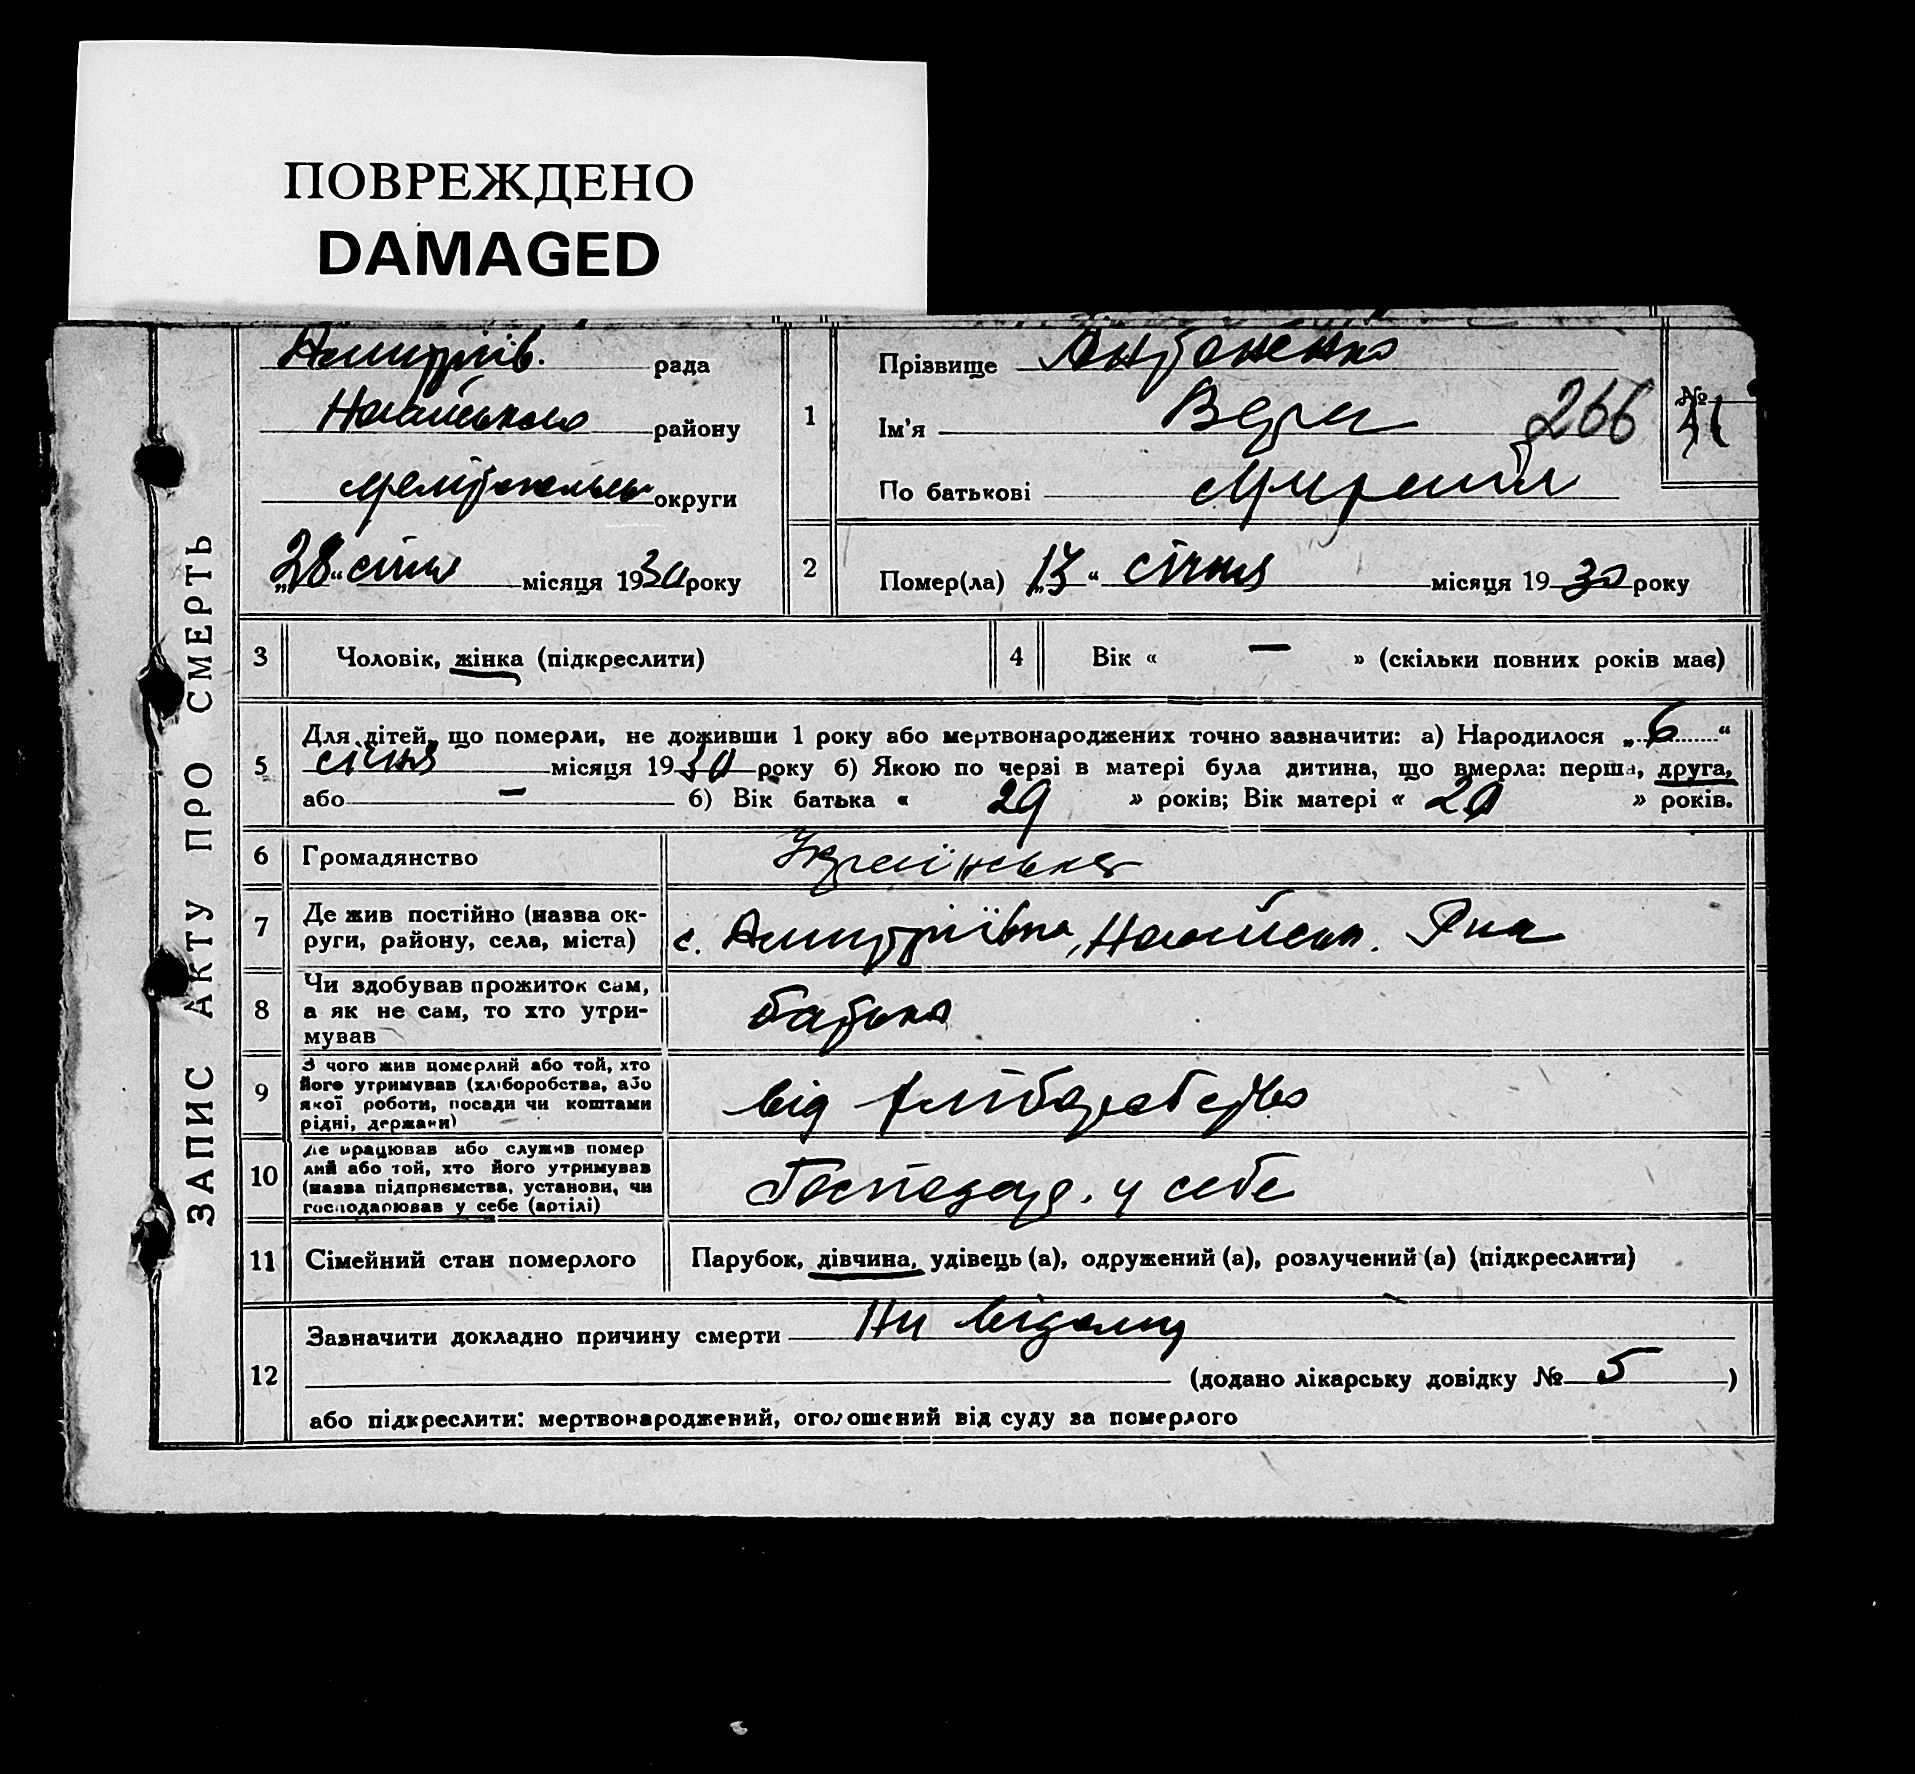 ПОВРЕЖДЕНО
DAMAGED
ЗАПИС АКТУ ПРО СМЕРТЬ
рада
району
округи
„28“ січня місяця 1930 року
1
Прізвище Антоненко
Ім'я Вера
266
По батькові
№
2
Помер(ла) „13“ січня місяця 1930 року
3 Чоловік, жінка (підкреслити)
4 Вік « — » (скільки повних років має)
5
Для дітей, що померли, не доживши 1 року або мертвонароджених точно зазначити: а) Народилося „6“
січня місяця 1930 року б) Якою по черзі в матері була дитина, що вмерла: перша, друга,
або — б) Вік батька « 29 » років; Вік матері « 20 » років.
6 Громадянство Українська
7
Де жив постійно (назва ок-
руги, району, села, міста)
с. Дмитріївка, Ногайськ. Р-на
8
Чи здобував прожиток сам,
а як не сам, то хто утри-
мував
батько
9
З чого жив померлий або той, хто
його утримував (хліборобства, або
якої роботи, посади чи коштами
рідні, держави)
від хліборобства
10
Де працював або служив помер
лий або той, хто його утримував
(назва підприємства, установи, чи
господарював у себе (артілі)
Господар. у себе
11 Сімейний стан померлого Парубок, дівчина, удівець (а), одружений (а), розлучений (а) (підкреслити)
12
Зазначити докладно причину смерти Ни відому
(додано лікарську довідку № 5)
або підкреслити: мертвонароджений, оголошений від суду за померлого